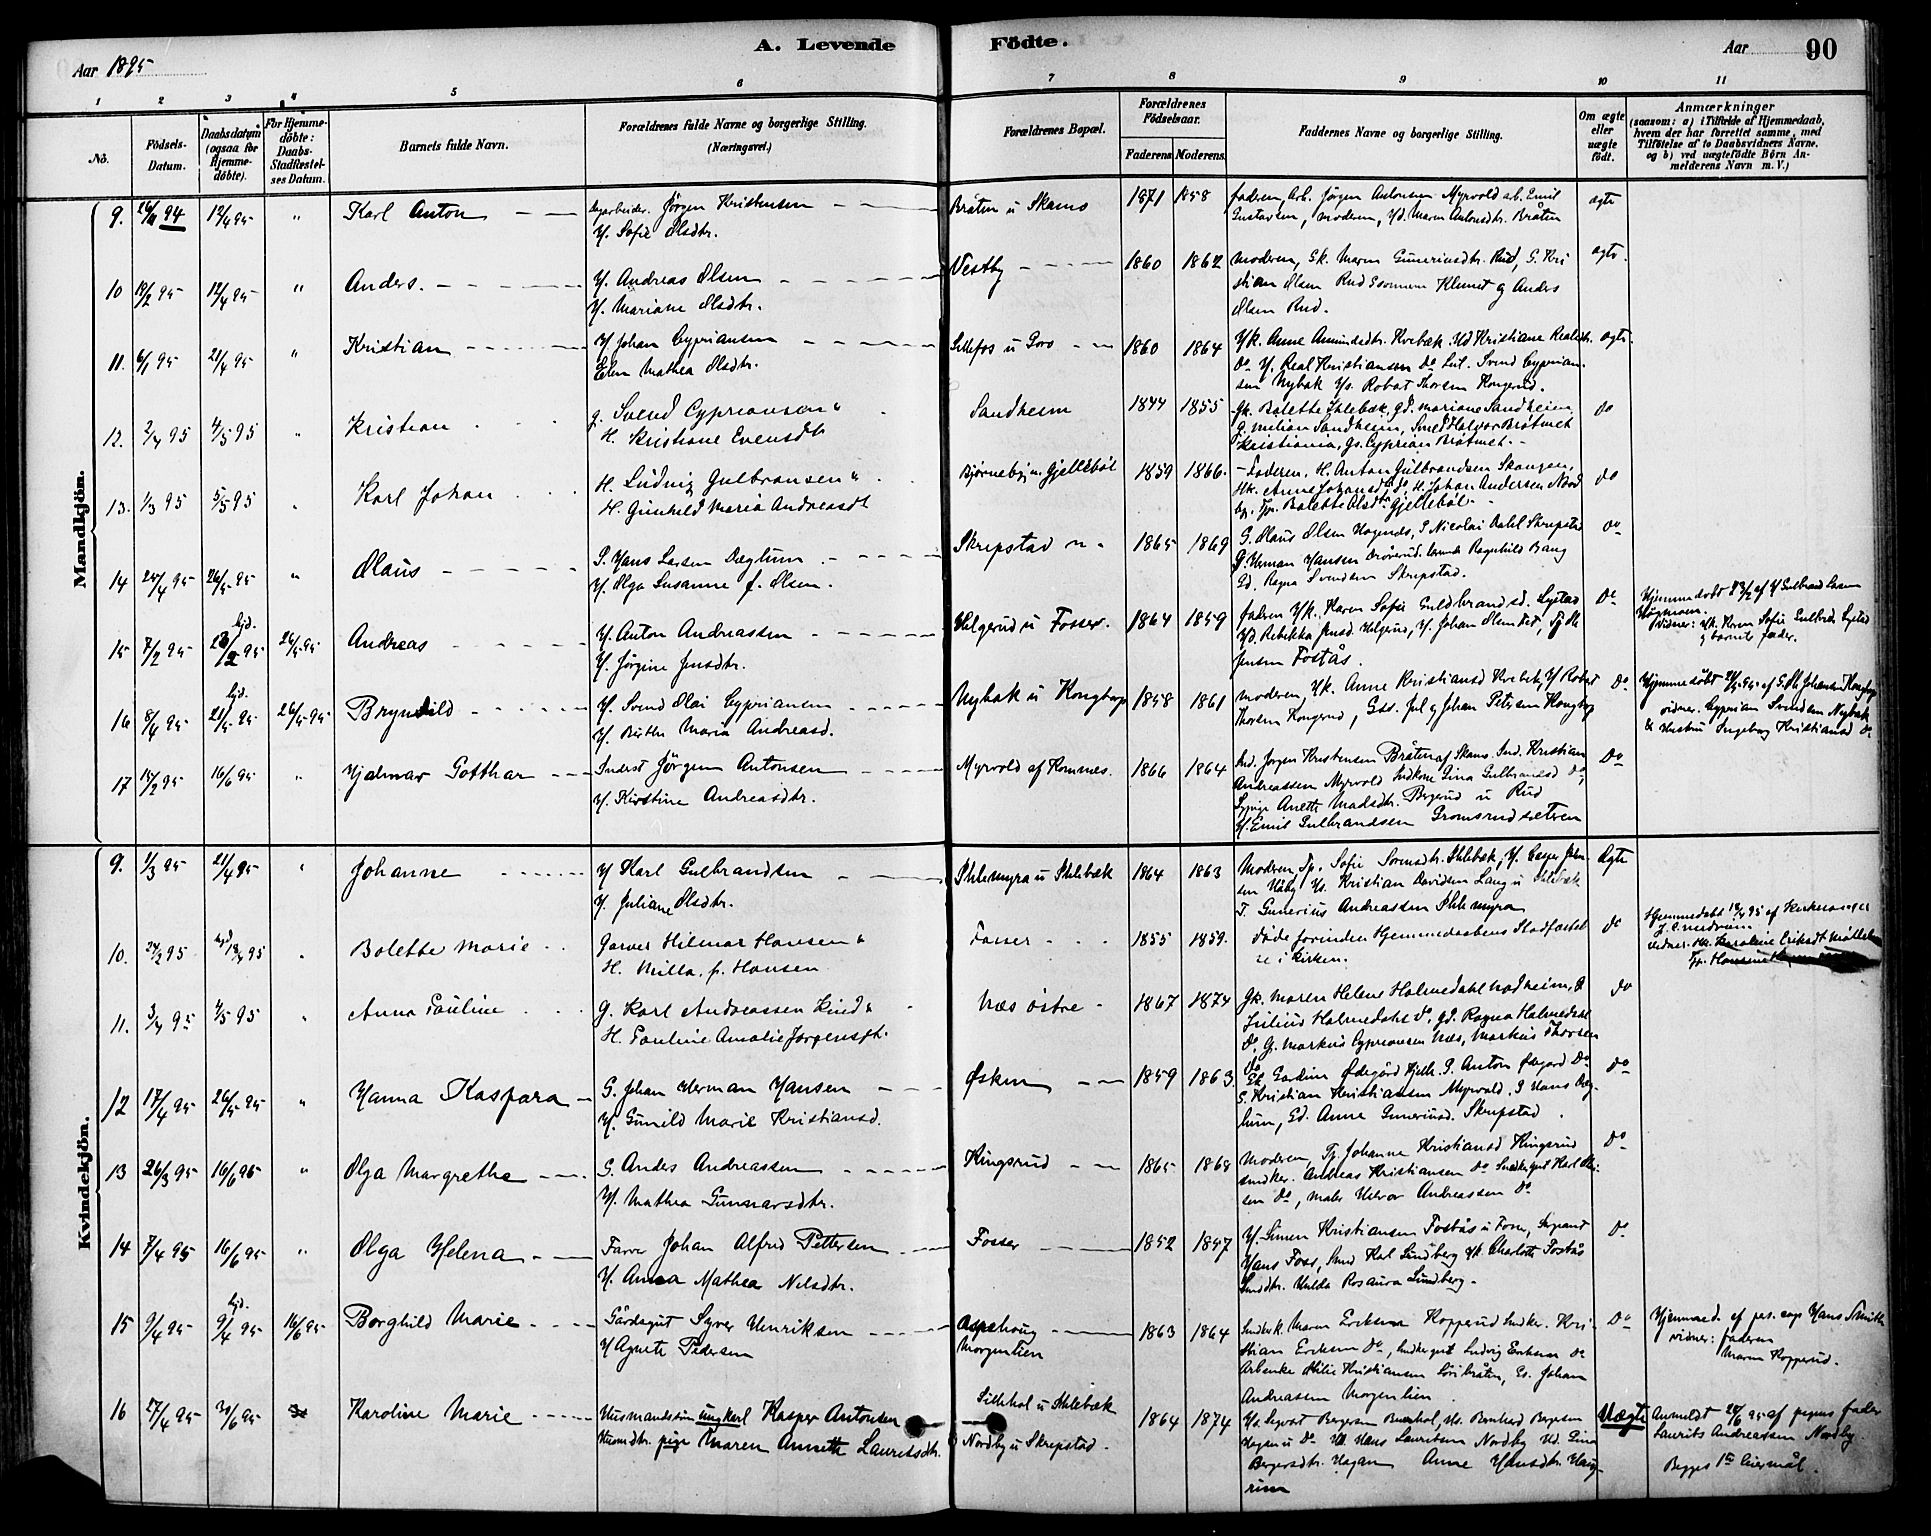 A. Levende Födte.
Aar 1895
Aar 90
1 2 3 4 5 6 7 8 9 10 11
No.
Födsels-Datum.
Daabsdatum (ogsaa for Hjemme-döbte).
For Hjemme-döbte: Daabs-Stadfæstel-ses Datum.
Barnets fulde Navn.
Forældrenes fulde Navne og borgerlige Stilling. (Næringsvei.)
Forældrenes Bopæl.
Forældrenes Födselsaar.
Faderens. Moderens.
Faddernes Navne og borgerlige Stilling.
Om ægte eller uægte födt.
Anmærkninger
(saasom: a) i Tilfælde af Hjemmedaab, hvem der har forrettet samme, med Tilföielse af to Daabsvidners Navne, og b) ved uægtefödte Börn Anmelderens Navn m.V.)
Mandkjön.
9. 26/11 94 12/4 95 " Karl Anton
Jørgen Kristensen
H. Sofie Olsdtr.
Bråten u Skams 1871 1858
faderen, Arb. Jørgen Antonsen Myrvold arb. Emil
Gustavsen, moderen, Hd. Maren Antonsdtr. Bråten
ægte
10 19/2 95 12/4 95 " Anders.
H. Andreas Olsen
H. Mariane Olsdtr.
Vestby 1860 1862
Moderen, Gk. Maren Guneriusdtr. Rud, G. Kri
stian Olsen Rud Klemet og Anders
Olsen Rud.
ægte.
11. 6/1 95 21/4 95 " Kristian
H Johan Cypriansen
Elen Mathea Olsdtr.
Sillefos u Goro 1860 1864
Hk. Anne Amundsdtr. Krebæk. Hd Kristiane Realsdtr.
Do H. Real Kristiansen Do Lul. Svend Cyprian-
sen Nybak Hs. Robert Thorsen Kongerud.
ægte.
12. 2/4 95 4/5 95 " Kristian
g. Svend Cypriansen "
H. Kristiane Evensdt
Sandheim 1844 1855
Gk. Bolette Ihlebæk, gd. Mariane Sandheim,
g. Milian Sandheim, Smed Halvor Bråtnet
Kristiania, gs. Cyprian Bråtnet.
do
13. 1/3 95 5/5 95 " Karl Johan
H. Ludvig Gulbransen "
H. Gunhild Maria Andreasdt
Bjørneby u. Gjellebøl 1859 1866.
Faderen, H. Anton Gulbrandsen Skangen,
Hk. Anne Johansdt Do, H. Johan Andersen Nord
by, Tp. Bolette Olsdt Gjellebøl
do
14 25/4 95 26/5 95 " Olaus
S. Hans Larsen Døglum
H. Olga Susanne f. Olsen.
Skrepstad 1865 1869
G. Olaus Olsen Hagenæs, S Nicolai Dahl Skrepstad
S. Herman Hansen Ragnhild Bang
Gd. Ragna Svendsen Skrepstad.
Do
15 7/2 95 hjd. 23/2 95 26/5 95 Andreas
H. Anton Andreassen
H. Jørgine Jensdtr.
Helgerud u Fosser. 1864 1859
faderen Hk. Karen Sofie Guldbrandsd. Lystad
Hd. Rebekka Jensd. Helgerud, H. Johan Olsen
Jensen Fostås.
Do
Hjemmedøbt 23/2 af H Gulbrand Larsen
vidner: Hk. Karen Sofie Gulbrds Lystad
og barnets fader.
16 8/4 95 hjd. 21/4 95 26/5 95 Brynhild
H. Svend Olai Cypriansen
H. Berthe Maria Andreasd.
Nybak u Kongtorp 1858 1861
Moderen, Hk. Anne Kristiansd Krebæk, H Robert
Thorsen Kongerud, Gds. Jul. og Johan Petersen Kongtorp
Do
Hjemmedøbt 21/4 95 af S. Johansen Kongtorp
vidner. Cyprian Svendsen Nybak
& Hustru Ingeborg Kristiansd Do
17 15/2 95 16/6 95 " Hjalmar Gotthar
Inderst Jørgen Antonsen
H. Kirstine Andreasdtr.
Myrvold af Homnæs. 1866 1864
Ind. Jørgen Kristensen Bråten af Skams. Ind. Kristian
Andreassen Myrvold Indkone Lina Gulbrandsd Do,
Sypige Anette Madsdtr. Bergerud u Rud
H. Emil Gulbrandsen Gromsrudsæteren
Do
Kvindekjön.
9. 1/3 95 21/4 95 " Johanne
H Karl Gulbrandsen
H. Juliane Olsdtr.
Ihlemyra u Ihlebæk 1864 1863
Modren Tp. Sofie Ihlebæk, H. Casper Jahn
sen Håby Hs. Kristian Davidsen Lang u Ihlebæk
T. Gunerius Andreassen Ihlemyra
Ægte
10. 24/2 95 hjd 13/4 95 " Bolette Marie
Garver Hilmar Hansen "
H. Milla. f. Hansen
Fosser 1855 1859.
døde forinden Hjemmedaabens Stadfæstel
se i kirken.
do
Hjemmedøbt 13/4 95 af Kirkesanger
vidner. Hk. Karoline Eriksdt
11. 3/4 95 4/5 95 " Anna Pauline
g. Karl Andreassen Lund "
H. Pauline Amalie Jørgensdt.
Næs østre 1867 1874
Gk. Maren Helene Holmedahl Nodheim, g
Julius Holmedahl Do, gd. Ragna Holmedahl
Do, G. Markus Cypriansen Næs, Markus Thorsen
Do
do
12 17/4 95 26/5 95 " Hanna Kaspara
G. Johan Herman Hansen
H. Gunild Marie Kristiansd.
Øsken 1859 1863.
Gk. Gardine Ødegård G. Anton Ødegård Do
S. Kristian Kristiansen Myrvold, S Hans Døg-
lum, Gd. Anne Gunerusd. Skrepstad.
Do
13 26/3 95 16/6 95 " Olga Margrethe
G. Anders Andreassen
H. Mathea Gunnarsdtr.
Kingsrud 1865 1868
Moderen, Tj. Johanne Kristiansd Kingsrud
snedker. Andreas Kristiansen Do Snedkergut Karl Ol-
sen Do, maler Halvor Andreassen Do
Do
14 7/4 95 16/6 95 " Olga Helena
Farver Johan Alfred Pettersen
H. Anna Mathea Nilsdtr.
Fosser 1852 1857
H. Simen Kristiansen Fostås u Fosser,
Hans Foss, Smed Karl Lindberg Hk. Charlotte Fostås
Smeddtr. Hulda Rosaura Lindberg.
Do
15 9/4 95 hjd. 9/4 95 16/6 95 Borghild Marie
Gårdsgut Syver Henriksen
H Agnete Pedersen
Aspehoug
Morgenlien
1863 1864
Maren Eriksen Kopperud Snedker. Kri-
stian Eriksen Do, Snedkergut Ludvig Eriksen Do
Arbenke Milie Kristiansen Loribråten, Gs. Johan
Andreassen Morgenlien
Do
Hjemmed. af pers. cap. Hans Smith
vidner: faderen
Maren Kopperud.
16 27/4 95 30/6 95 Karoline Marie
Husmandssøn ungkarl Kasper Antonsen
Husmdtr. pige Maren Annette Lauritsdtr.
Sillehol u Ihlebæk
Nordby u Skrepstad.
1864 1874
Hs. Sigvart Bergersen Hs. Bernhard Bergersen
Hagan u Do Hs. Hans Lauritsen Nordby Hd. Lina
Bergersdtr. Hagan Anne Hansdtr. Haug
rim
Uægte
Anmeldt 28/6 95 af pigens fader
Laurits Andreassen Nordby.
Begges 1ste leiermål.